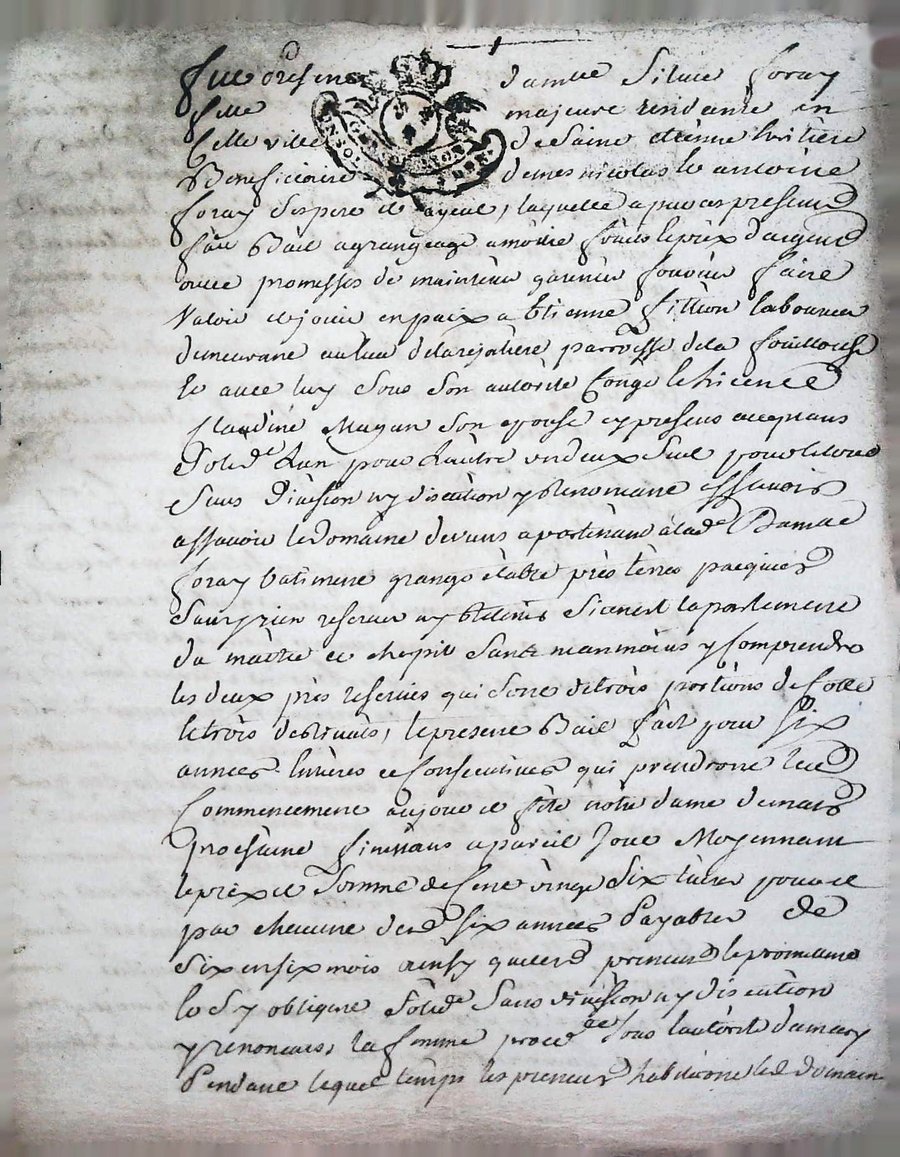 Fut presente damlle Silvie Foray
fille majeure residante en
Cette ville de Saint etienne heritiere
Beneficiaire de mes nicolas et antoine
foray Ses pere et ayeul, laquelle a par ces presentes
fait Bail a grangeage a moitié fruits le prix d'argent
avec promesses de maintenir garentir fournir faire
Valoir et jouir en paix a Etienne fillion laboureur
demeurant au lieu de la parroisse de la fouillouse
et avec luy Sous Son autorité Congé et licence
Claudine Magan Son epouse cy presens acceptans
Solid.e l'un pour l'autre un deux Seul pour le tout
Sans division ny discution y Renoncant assavoir
assavoir le Domaine apartenant a lad.e Damlle
foray batiment grange étable prés terres pacquiers
Sans rien reserver ny Retenir Si c'est l'apartement
du maitre et Sans neanmoins y Comprendre
les deux prés reservés qui Sont de trois portions
le present Bail fait pour Six
années Entieres et Consecutives qui prendront leur
Commencement au jour et fête notre dame de mars
prochaine finissans a pareil Jour Moyennant
le prix et Somme de Cent vingt Six livres
par chacune desd Six années Payables de
Six en Six mois ainsy que lesd preneurs le promettent
et S'y obligent Solid.e Sans division ny discution
y renoncans, la femme proced.te Sous l'autorité du mary
Pendant lequel temps les preneurs habiteront led Domaine